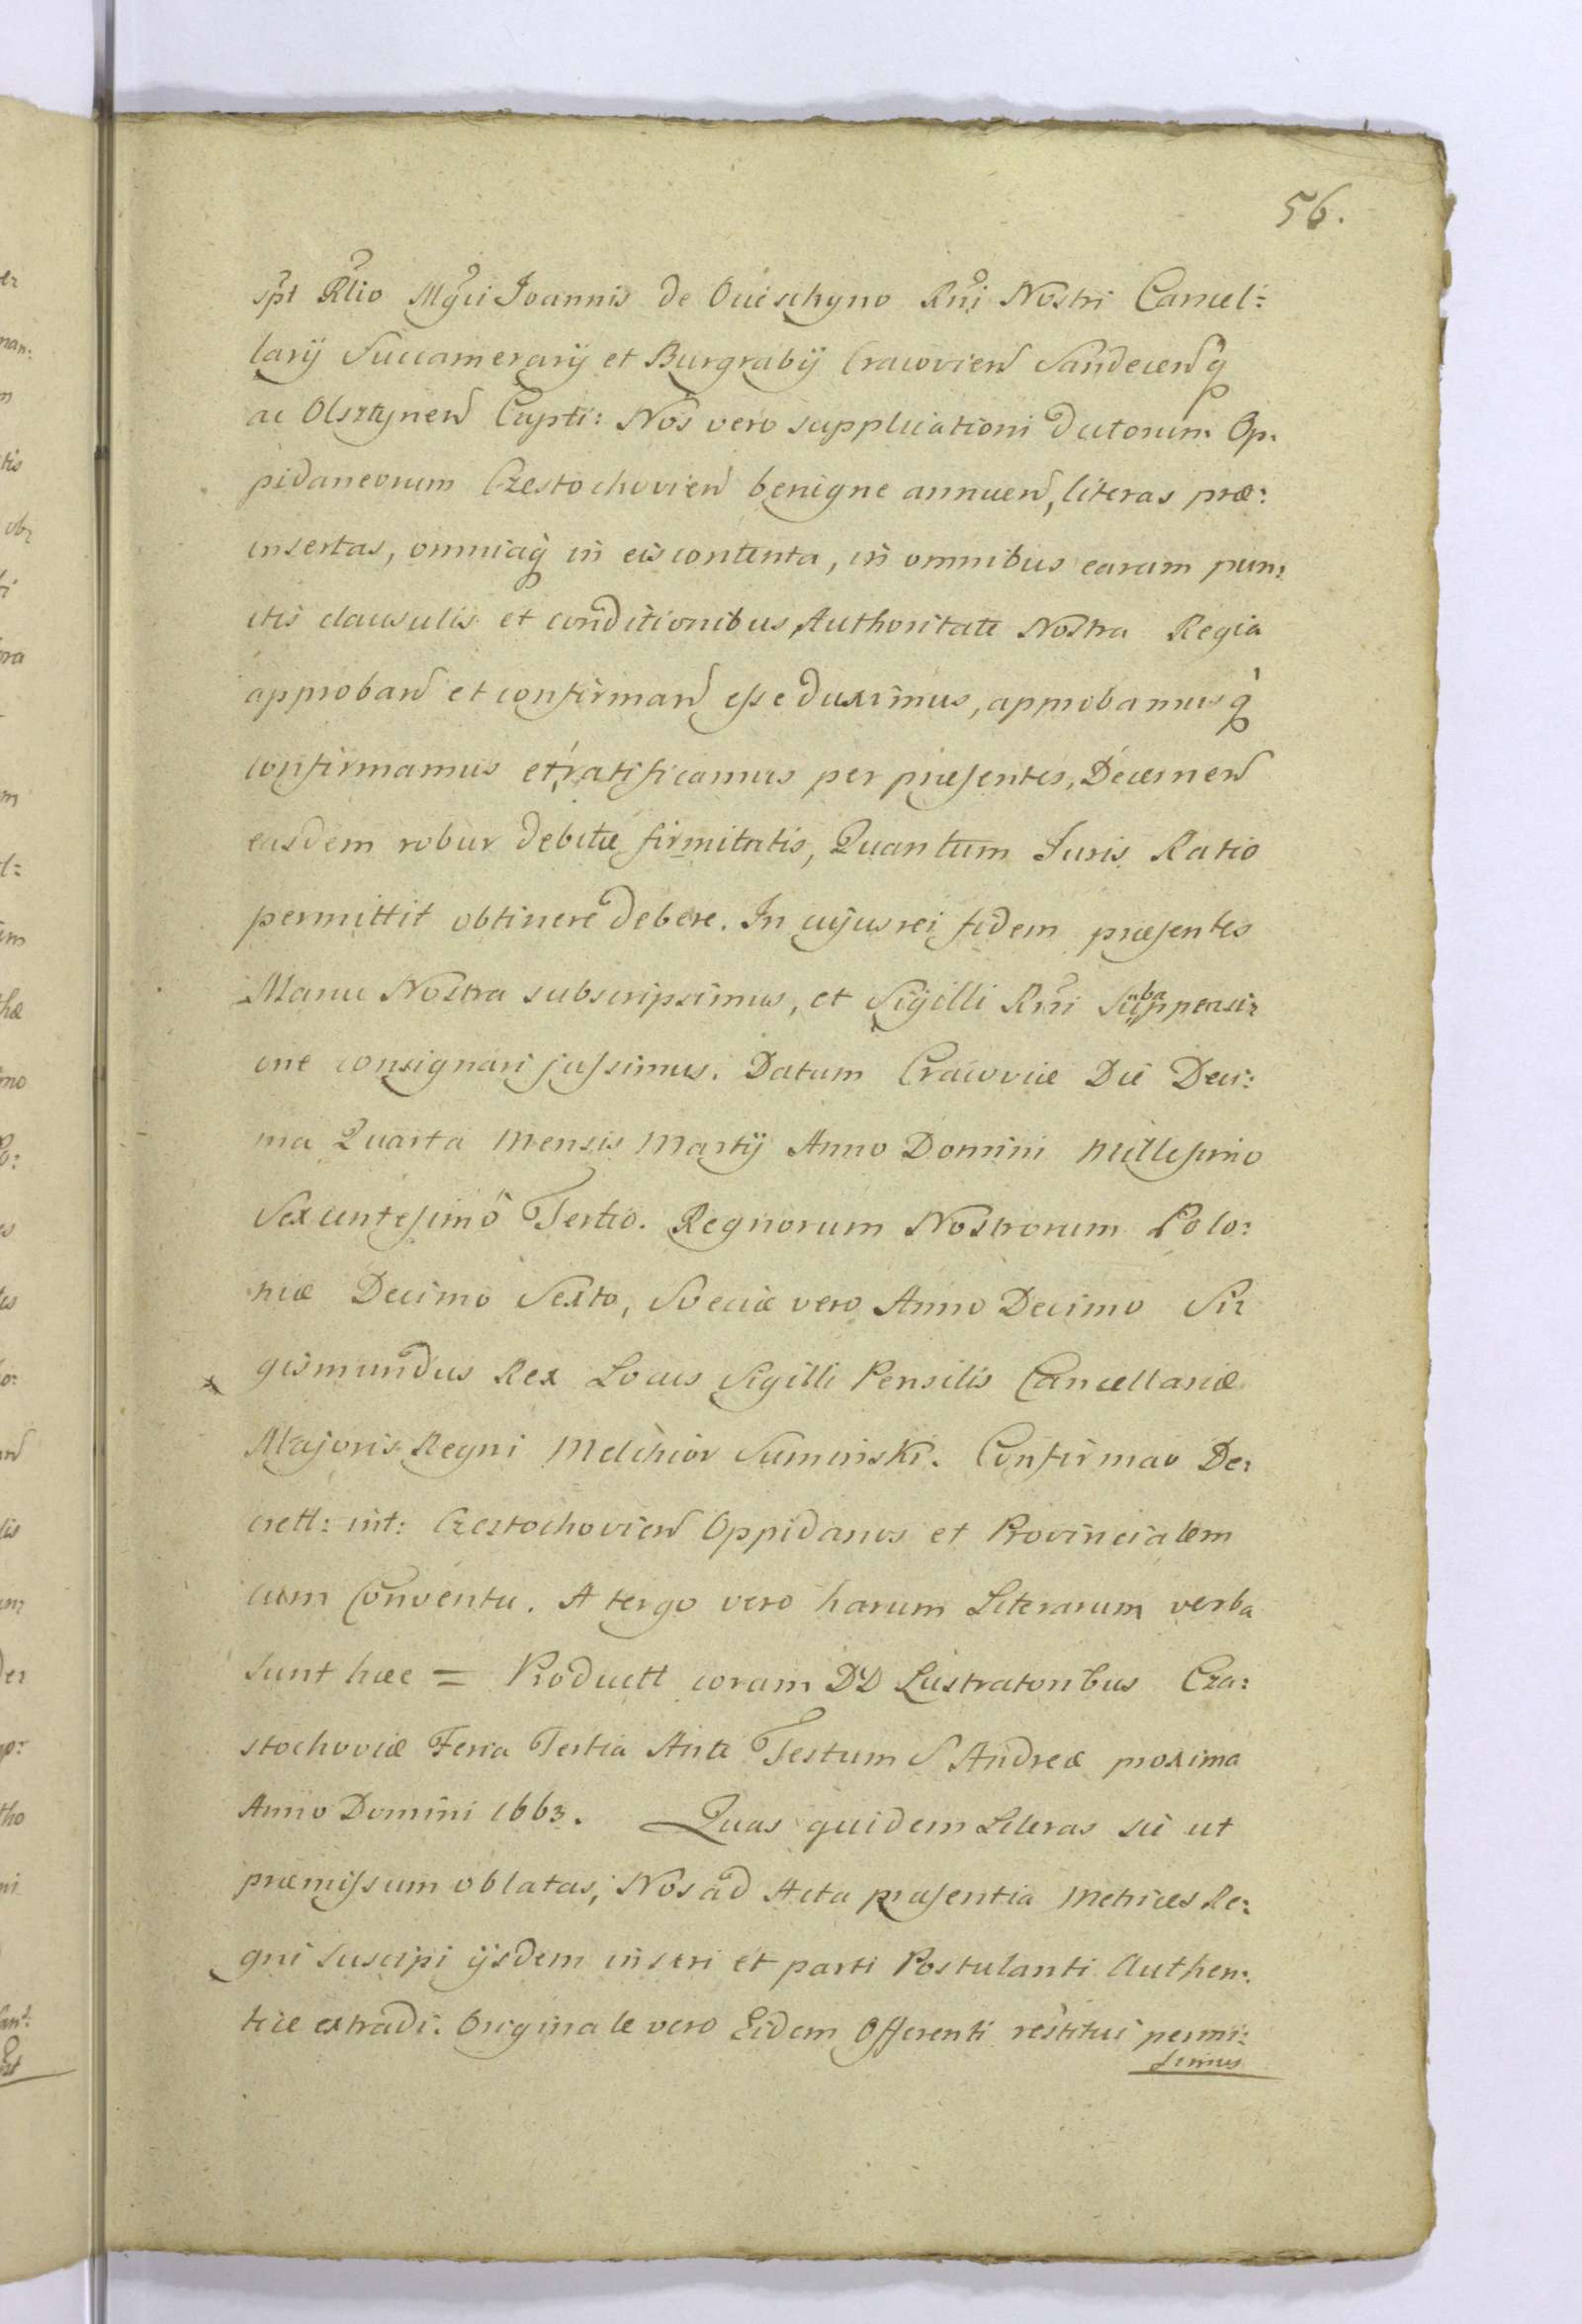 56.
spt Rlio Mgci Joannis de Ocieschyno Rni Nostri Cancel:
larij Succamerarij et Burgrabij Cracovien Sandecenq
ac Olsztynen Capti: Nos vero supplicationi dictorum Op:
pidaneorum Czestochovien benigne annuen, literas præ:
insertas, omniaq in eis contenta, in omnibus earum pun:
ctis clausulis et conditionibus Authoritate Nostra Regia
approband et confirmand esse duximus, approbamusq
confirmamus et ratificamus per præsentes, Decernen
easdem robur debitæ firmitatis, Quantum Juris Ratio
permittit obtinere debere. In cujus rei fidem præsentes
Manu Nostra subscripsimus, et Sigilli Rni Subappensi:
one consignari jussimus. Datum Cracoviæ Die Deci:
ma Quarta Mensis Martij Anno Domini Millesimo
Sexcentesimo Tertio. Regnorum Nostrorum Polo:
niæ Decimo Sexto, Sveciæ vero Anno Decimo Si:
gismundus Rex Locus Sigilli Pensilis Cancellariæ
Majoris Regni Melchior Suminski. Confirmao De:
crett: int: Czestochovien Oppidanos et Provincialem
cum Conventu. A tergo vero harum Literarum verba
sunt hæc = Productt coram DD Lustratoribus Cza:
stochoviæ Feria Tertia Ante Festum S Andreæ proxima
Anno Domini 1663. Quas quidem Literas sic ut
præmissum oblatas, Nos ad Acta præsentia Metrices Re:
gni suscipi ijsdem inseri et parti Postulanti Authen:
tice extradi. Originale vero Eidem Offerenti restitui permi:
simus